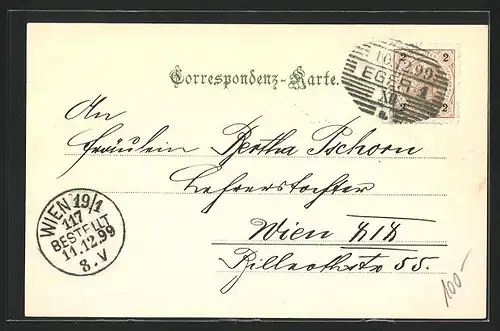 Correspondenz-Karte.
2 2
10.12.99
EGER 1
XII
2 2
An
Fräulein Bertha Tschorn
Lehrerstochter
Wien XIX
Billrothstr 55.
WIEN 19/1
117
BESTELLT
11.12.99
8.V
100-